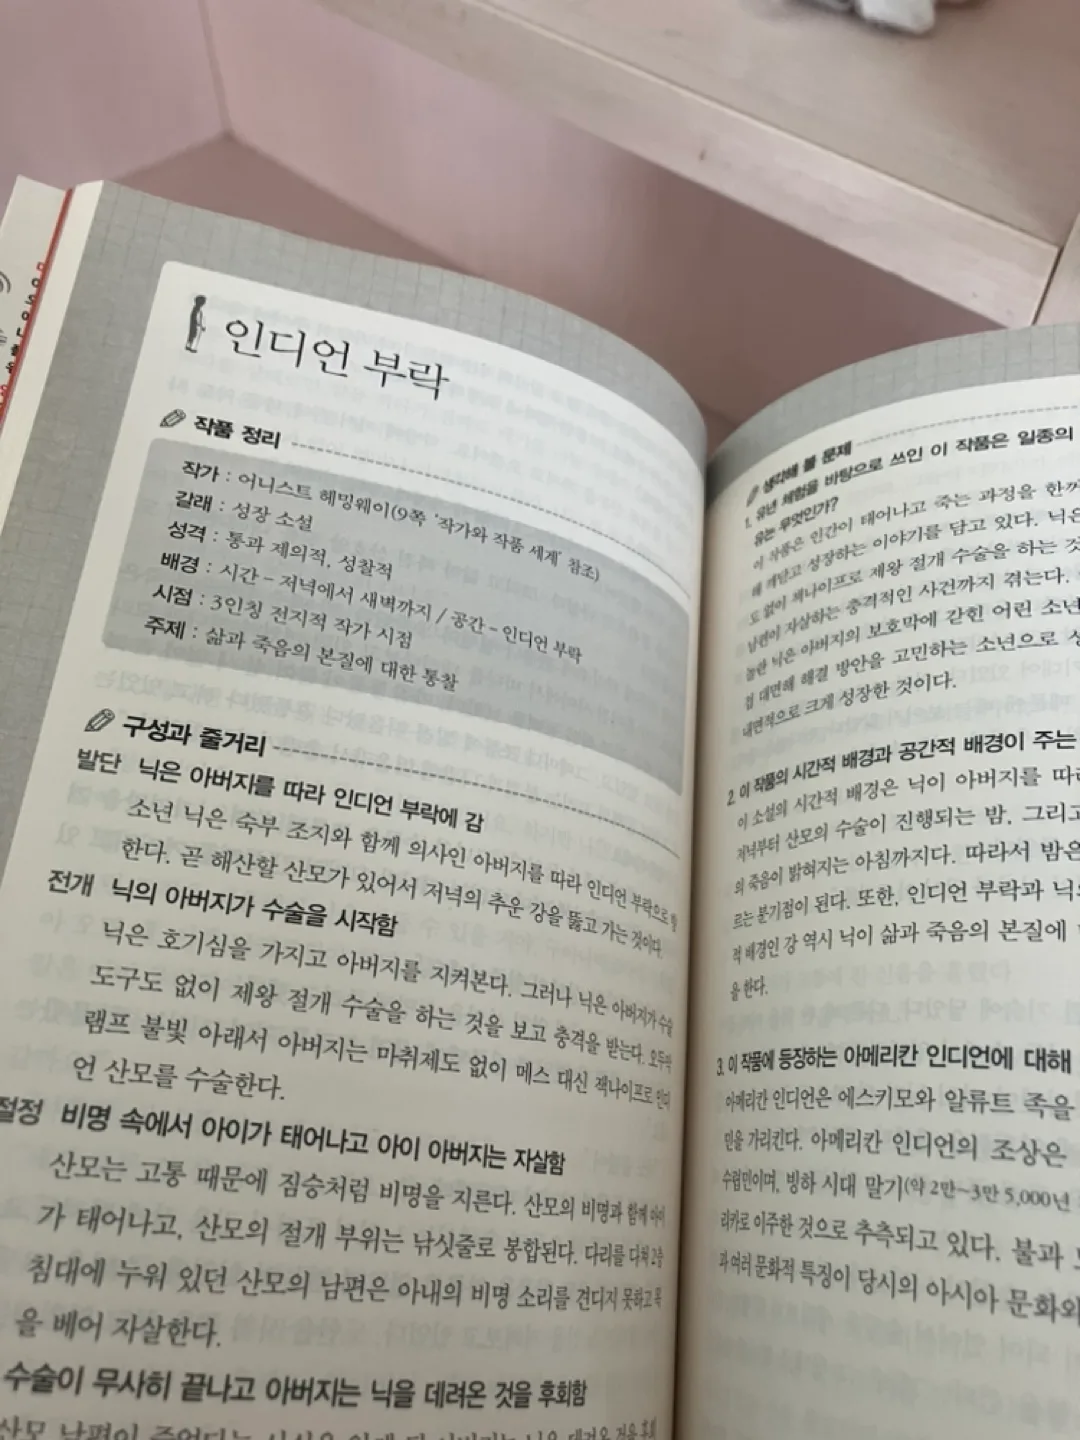 인디언 부락
작품 정리
작가 : 어니스트 헤밍웨이(9쪽 '작가와 작품 세계' 참조)
갈래 : 성장 소설
성격 : 통과 제의적, 성찰적
배경 : 시간 – 저녁에서 새벽까지 / 공간 – 인디언 부락
시점 : 3인칭 전지적 작가 시점
주제 : 삶과 죽음의 본질에 대한 통찰
구성과 줄거리
발단 닉은 아버지를 따라 인디언 부락에 감
소년 닉은 숙부 조지와 함께 의사인 아버지를 따라 인디언 부락으로 향
한다. 곧 해산할 산모가 있어서 저녁의 추운 강을 뚫고 가는 것이다.
전개 닉의 아버지가 수술을 시작함
닉은 호기심을 가지고 아버지를 지켜본다. 그러나 닉은 아버지가 수술
도구도 없이 제왕 절개 수술을 하는 것을 보고 충격을 받는다. 오두막
램프 불빛 아래서 아버지는 마취제도 없이 메스 대신 잭나이프로 인디
언 산모를 수술한다.
절정 비명 속에서 아이가 태어나고 아이 아버지는 자살함
산모는 고통 때문에 짐승처럼 비명을 지른다. 산모의 비명과 함께 아이
가 태어나고, 산모의 절개 부위는 낚싯줄로 봉합된다. 다리를 다쳐 2층
침대에 누워 있던 산모의 남편은 아내의 비명 소리를 견디지 못하고 목
을 베어 자살한다.
수술이 무사히 끝나고 아버지는 닉을 데려온 것을 후회함
산모 남편이 죽었다는 사실을 알게 된 아버지는 닉을 데려온 것을 후회
생각해 볼 문제
1. 유년 체험을 바탕으로 쓰인 이 작품은 일종의
유는 무엇인가?
이 작품은 인간이 태어나고 죽는 과정을 한꺼
해 깨닫고 성장하는 이야기를 담고 있다. 닉은
도 없이 잭나이프로 제왕 절개 수술을 하는 것
남편이 자살하는 충격적인 사건까지 겪는다.
놀란 닉은 아버지의 보호막에 갇힌 어린 소년
접 대면해 해결 방안을 고민하는 소년으로 성
내면적으로 크게 성장한 것이다.
2. 이 작품의 시간적 배경과 공간적 배경이 주는
이 소설의 시간적 배경은 닉이 아버지를 따라
저녁부터 산모의 수술이 진행되는 밤, 그리고
의 죽음이 밝혀지는 아침까지다. 따라서 밤은
르는 분기점이 된다. 또한, 인디언 부락과 닉의
적 배경인 강 역시 닉이 삶과 죽음의 본질에
을 한다.
3. 이 작품에 등장하는 아메리칸 인디언에 대해
아메리칸 인디언은 에스키모와 알류트 족을
민을 가리킨다. 아메리칸 인디언의 조상은
수렵민이며, 빙하 시대 말기(약 2만~3만 5,000년
리카로 이주한 것으로 추측되고 있다. 불과
과 여러 문화적 특징이 당시의 아시아 문화와